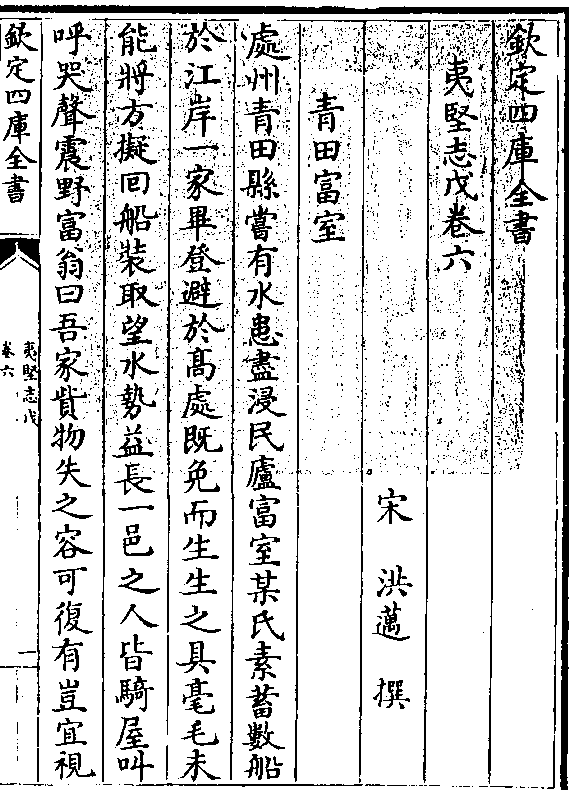 欽定四庫全書
夷堅志戊卷六
宋 洪邁 撰
青田富室
處州青田縣嘗有水患盡浸民廬富室某氏素蓄數船
於江岸一家畢登避於高處既免而生生之具毫毛未
能將方擬回船裝取望水勢益長一邑之人皆騎屋叫
呼哭聲震野富翁曰吾家貲物失之容可復有豈宜視
欽定四庫全書
夷堅志戊
卷六
一